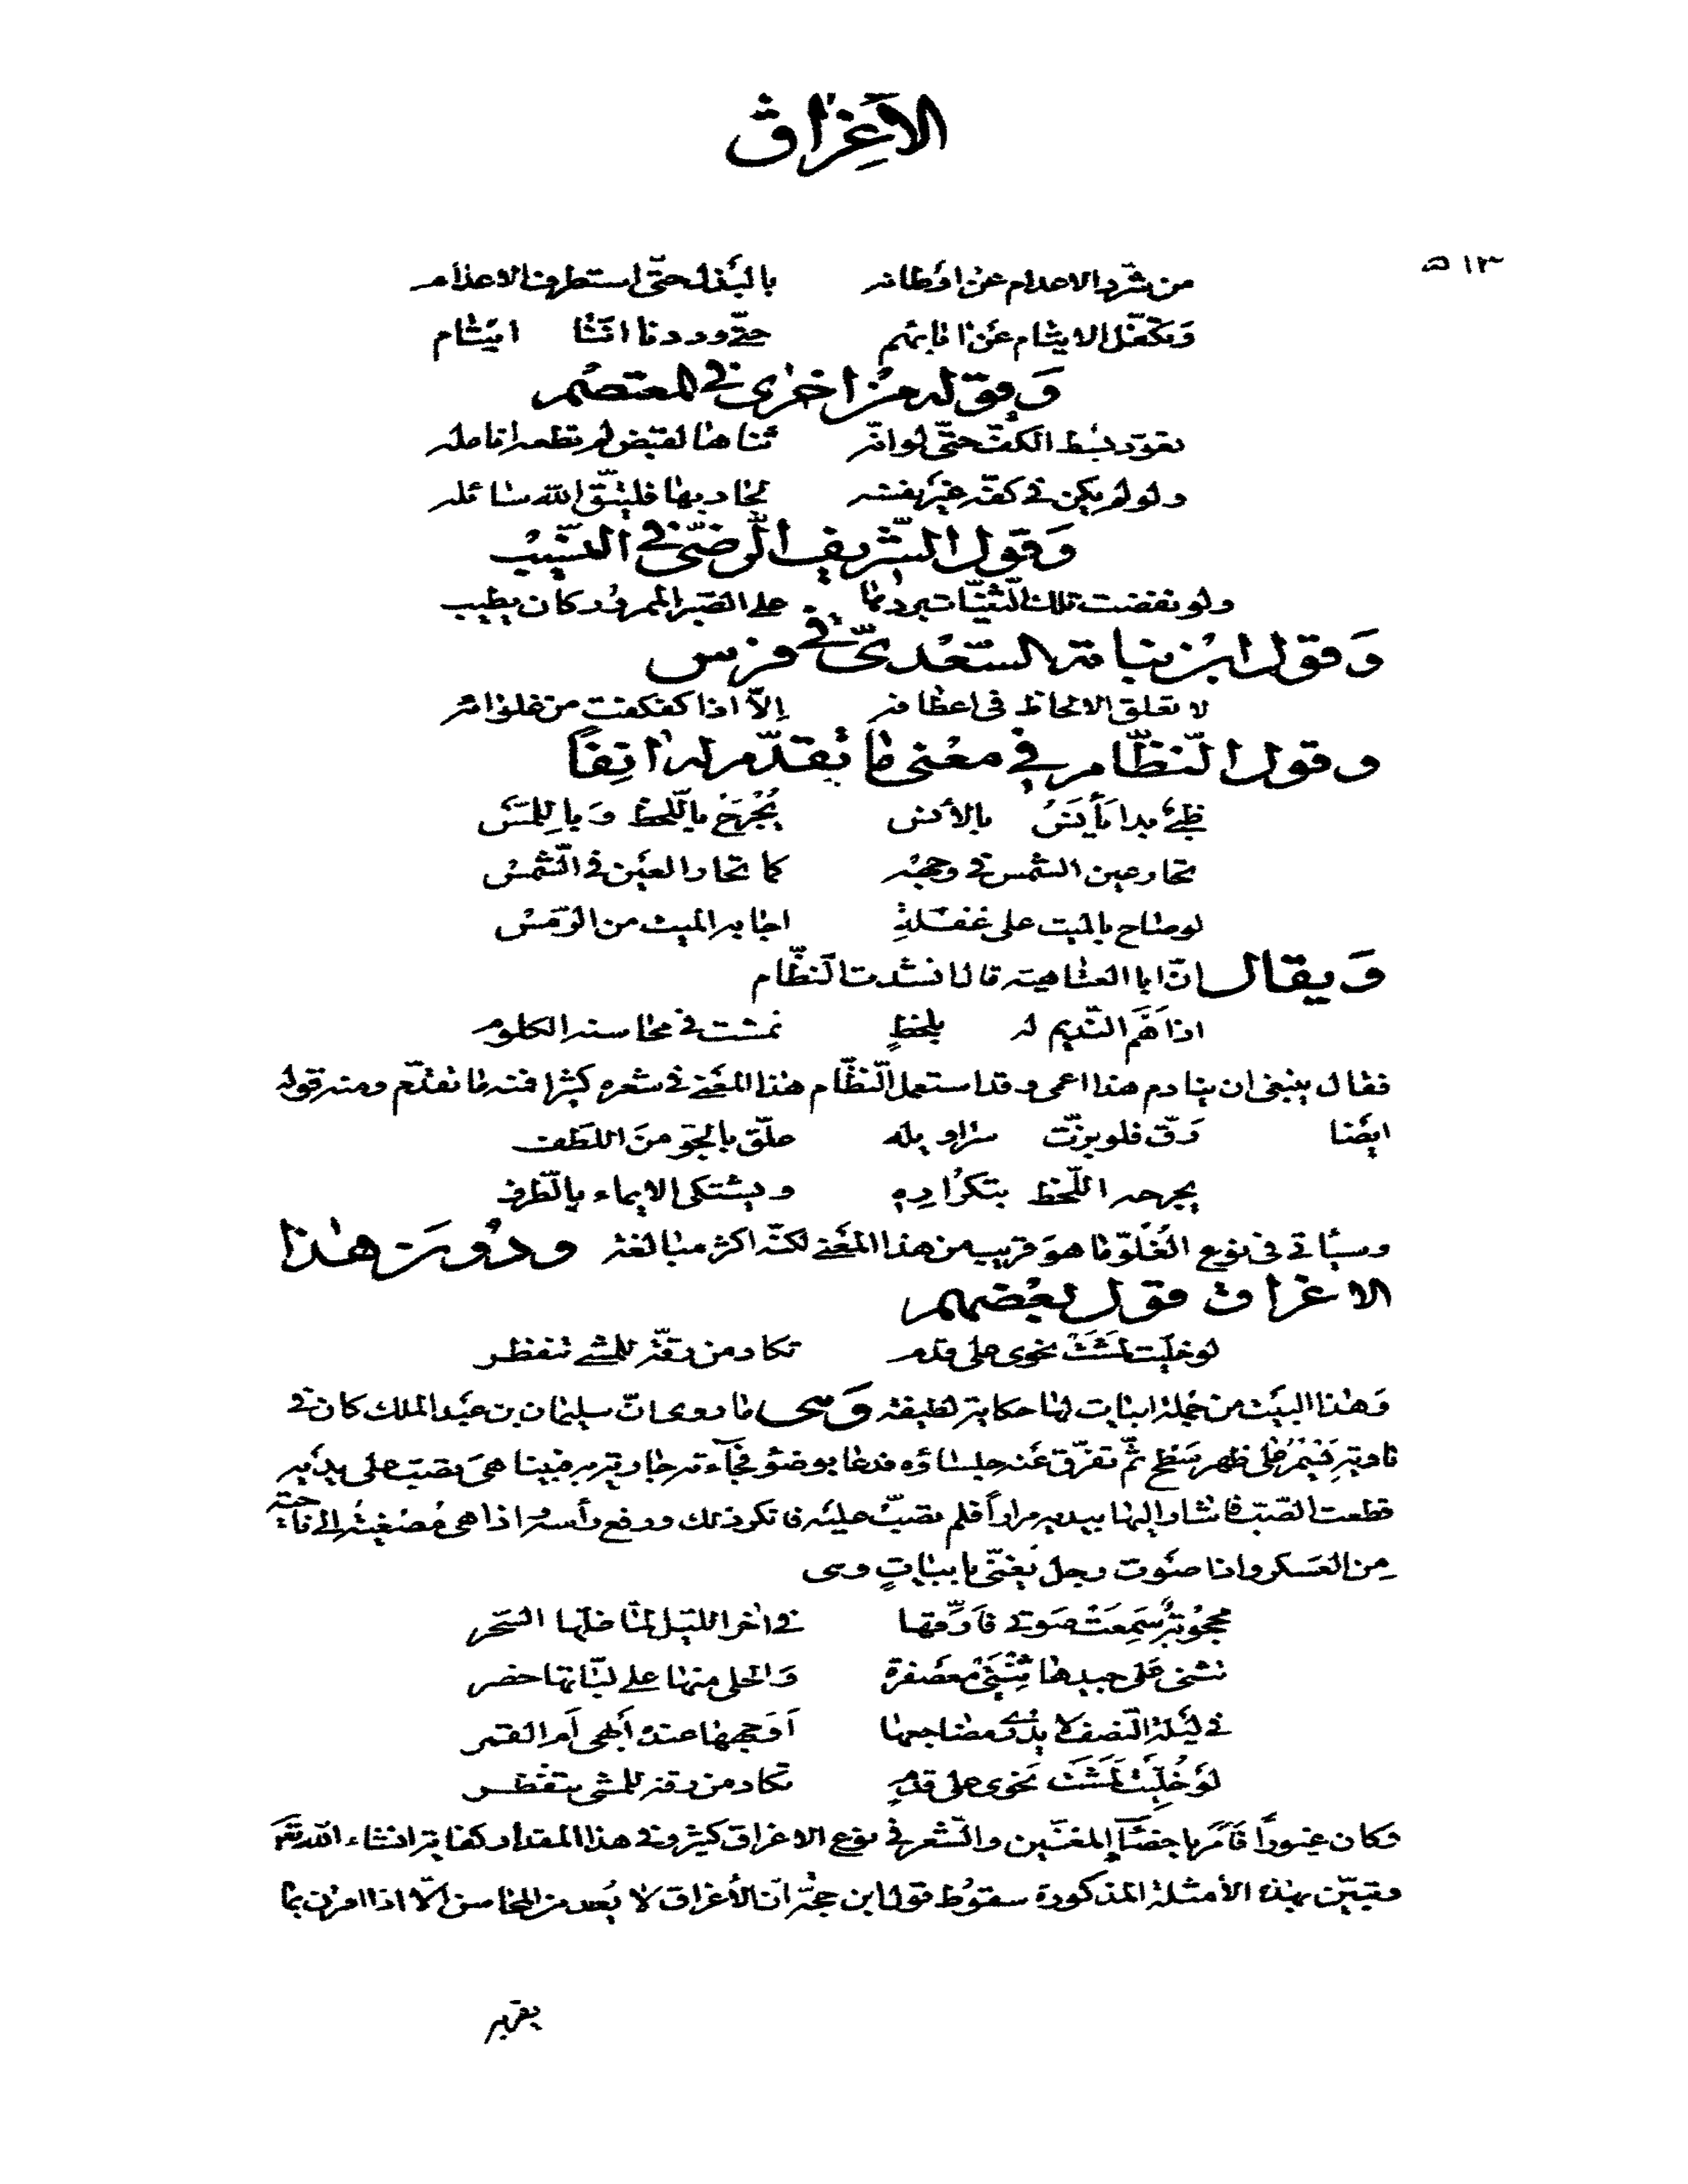 الاغراق
٥١٣
من شرّد الاعدام عن اوطانه بالبذل حتّى استطرف الاعدام
وتكفّل الايتام عن آبائهم حتّى وددنا انّنا ايتام
وقوله من اخرى في المعتصم
تعوّد بسط الكفّ حتّى لو انّه ثناها لقبض لم تطعه انامله
ولو لم يكن في كفّه غير نفسه لجاد بها فليتّق الله سائله
وقول الشّريف الرّضىّ في النّسيب
ولو نفضت تلك الثّنيّات بردها على الصّبر الممرور كان يطيب
وقول ابن نباتة السّعدىّ في فرس
لا تعلق الالحاظ في اعطافه الّا اذا كفكفت من غلوائه
وقول النّظّام في معنى ما تقدّم له آنفا
ظبي بدا يأنس بالأنس يُجْرَح باللّحظ وباللمس
تحار عين الشمس في وجهه كما تحار العين في الشّمس
لو صاح بالميت على غفلةٍ اجابه الميت من الرّمس
ويقال انّ ابا العتاهية قال انشدت النّظّام
اذا همّ النّديم له بلحظٍ تمشت في محاسنه الكلوم
فقال ينبغي ان ينادم هذا اعمى وقد استعمل النّظّام هذا المعنى في شعره كثيرا فمنه ما تقدّم ومنه قوله
ايضا رقّ فلو بزّت سراويله علّق بالجوّ من اللطف
يجرحه اللّحظ بتكراره ويشتكى الايماء بالطّرف
وسيأتي في نوع الغُلوّ ما هو قريب من هذا المعنى لكنّه اكثر مبالغة ودون هذا
الاغراق قول بعضهم
لو خلّيت لمشت نحوى على قدم تكاد من رقّة للمشى تنفطر
وهذا البيت من جملة ابيات لها حكاية لطيفة وهى ما روى انّ سليمان بن عبد الملك كان في
بادية فسمر على ظهر سطح ثمّ تفرّق عنه جلساؤه فدعا بوضوء فجآءته جارية به فبينا هى تصبّ على يديه
قطعت الصّبّ فاشار اليها بيديه مراراً فلم تصبّ عليه فانكر ذلك ورفع رأسه اذا هى مصغية الى ناحية
من العسكر واذا صوت رجل يغنّى بابياتٍ وهى
محجوبة سمعت صوتي فأرّقها في آخر الليل لمّا ظلّها السّحر
تثنى على جيدها ثِنْيَىْ معصفرة والحلى منها على لبّاتها خضر
في ليلة النّصف لا يدرى مضاجعها أوجهها عنده أبهى أم القمر
لو خُلِّيت لمشت نحوى على قدمٍ تكاد من رقة للمشى تنفطر
وكان غيوراً فأمر باخصاء المغنّين والشّعر في نوع الاغراق كثير وفي هذا المقدار كفاية انشاء الله تعالى
وتبيّن بهذه الأمثلة المذكورة سقوط قول ابن حجّة انّ الأغراق لا يُعد من المحاسن الّا اذا اقترن بما
يقربه